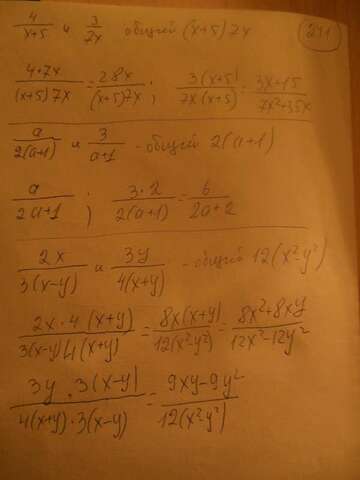 4/(x+5) и 3/7x общий (x+5)7x 241
4+7x/(x+5)7x = 28x/(x+5)7x ; 3(x+5)/7x(x+5) = 3x+15/7x²+35x
a/2(a+1) и 3/a+1 - общий 2(a+1)
a/2a+1 ; 3·2/2(a+1) = 6/2a+2
2x/3(x-y) и 3y/4(x+y) - общий 12(x²-y²)
2x·4(x+y)/3(x-y)4(x+y) = 8x(x+y)/12(x²-y²) = 8x²+8xy/12x²-12y²
3y·3(x-y)/4(x+y)·3(x-y) = 9xy-9y²/12(x²-y²)